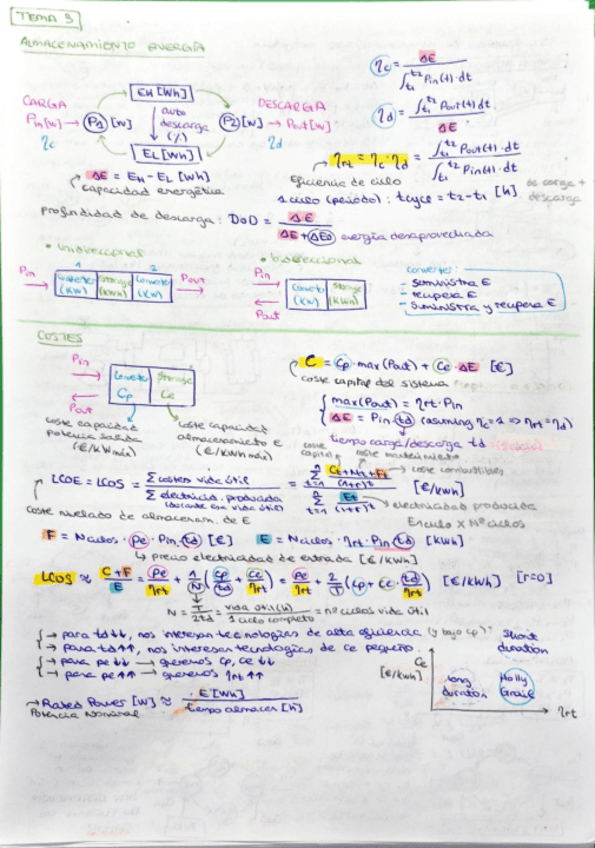 TEMA 5
ALMACENAMIENTO ENERGÍA
CARGA
Pin[W] → P1 [W]
ηc
EH [Wh]
auto
descarga
(%)
EL [Wh]
DESCARGA
P2 [W] → Pout [W]
ηd
ηc = ΔE / ∫t1^t2 Pin(t)·dt
ηd = ∫t1^t2 Pout(t) dt / ΔE
ΔE = EH - EL [Wh]
capacidad energética
ηrt = ηc·ηd = ∫t1^t2 Pout(t)·dt / ∫t1^t2 Pin(t)·dt
eficiencia de ciclo
1 ciclo (período): tcycle = t2-t1 [h] de carga + descarga
profundidad de descarga: DoD = ΔE / ΔE + ΔE0 energía desaprovechada
• unidireccional
Pin
1
Converter (kW)
Storage (kWh)
2
Converter (kW)
Pout
• bidireccional
Pin
Pout
Converter (kW)
Storage (kWh)
converter:
- suministra E
- recupera E
- suministra y recupera E
COSTES
Pin
Pout
Converter Cp
Storage Ce
coste capacidad potencia salida (€/kW máx)
coste capacidad almacenamiento E (€/kWh máx)
C = Cp·max(Pout) + Ce·ΔE [€]
coste capital del sistema
max(Pout) = ηrt·Pin
ΔE = Pin·td (assuming ηc=1 ⇒ ηrt=ηd)
tiempo carga/descarga td
coste capital
coste mantenimiento
coste combustibles
LCOE = LCOS = Σ costes vida útil / Σ electricid. producida (durante esa vida útil) = Σ t=1 n Ct+Mt+Ft / (1+r)^t / Σ t=1 n Et / (1+r)^t [€/kWh]
coste nivelado de almacenam. de E
electricidad producida
E ciclo x Nº ciclos
F = Nciclos·pe·Pin·td [€] E = Nciclos·ηrt·Pin·td [kWh]
↳ precio electricidad de entrada [€/kWh]
LCOS ≈ C+F / E = pe / ηrt + 1/N (Cp/td + Ce/ηrt) = pe / ηrt + 2/T (Cp + Ce·td/ηrt) [€/kWh] [r=0]
N = T / 2td = vida útil (h) / 1 ciclo completo = nº ciclos vida útil
→ para td↓↓, nos interesan tecnologías de alta eficiencia (y bajo Cp)?
→ para td↑↑, nos interesan tecnologías de Ce pequeño.
→ para pe↓↓ → queremos Cp, Ce↓↓
→ para pe↑↑ → queremos ηrt↑↑
Ce [€/kWh]
Short duration
Long duration
Holly Grail
ηrt
→ Rated Power [W] ≈ E [Wh] / tiempo almacen [h]
Potencia Nominal